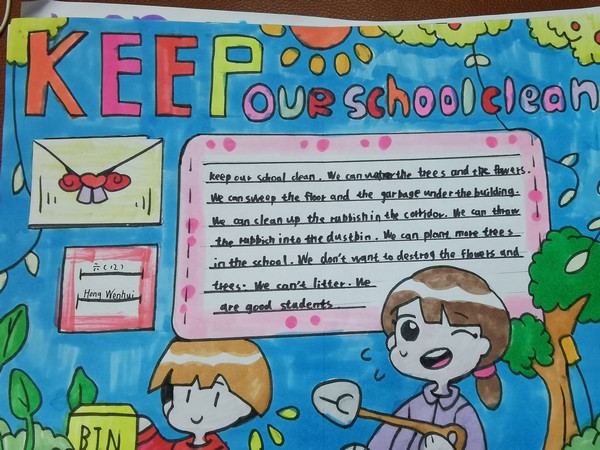 KEEP our school clean
keep our school clean. We can water the trees and the flowers.
We can sweep the floor and the garbage under the building.
We can clean up the rubbish in the corridor. We can thraw
the rubbich into the dustbin. We can plant more trees
in the school. We don't want to destrog the flowers and
trees. We can't litter. We
are good students
六(12)
Hong Wenhui
BIN